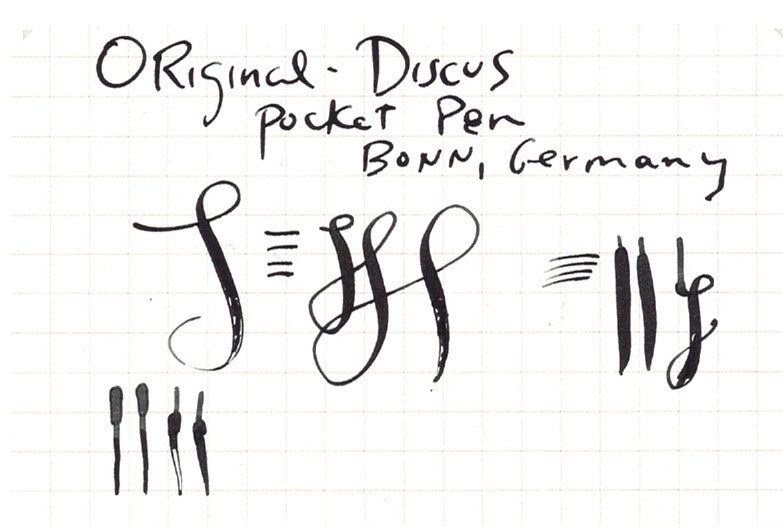 Original - Discus
Pocket Pen
Bonn, Germany